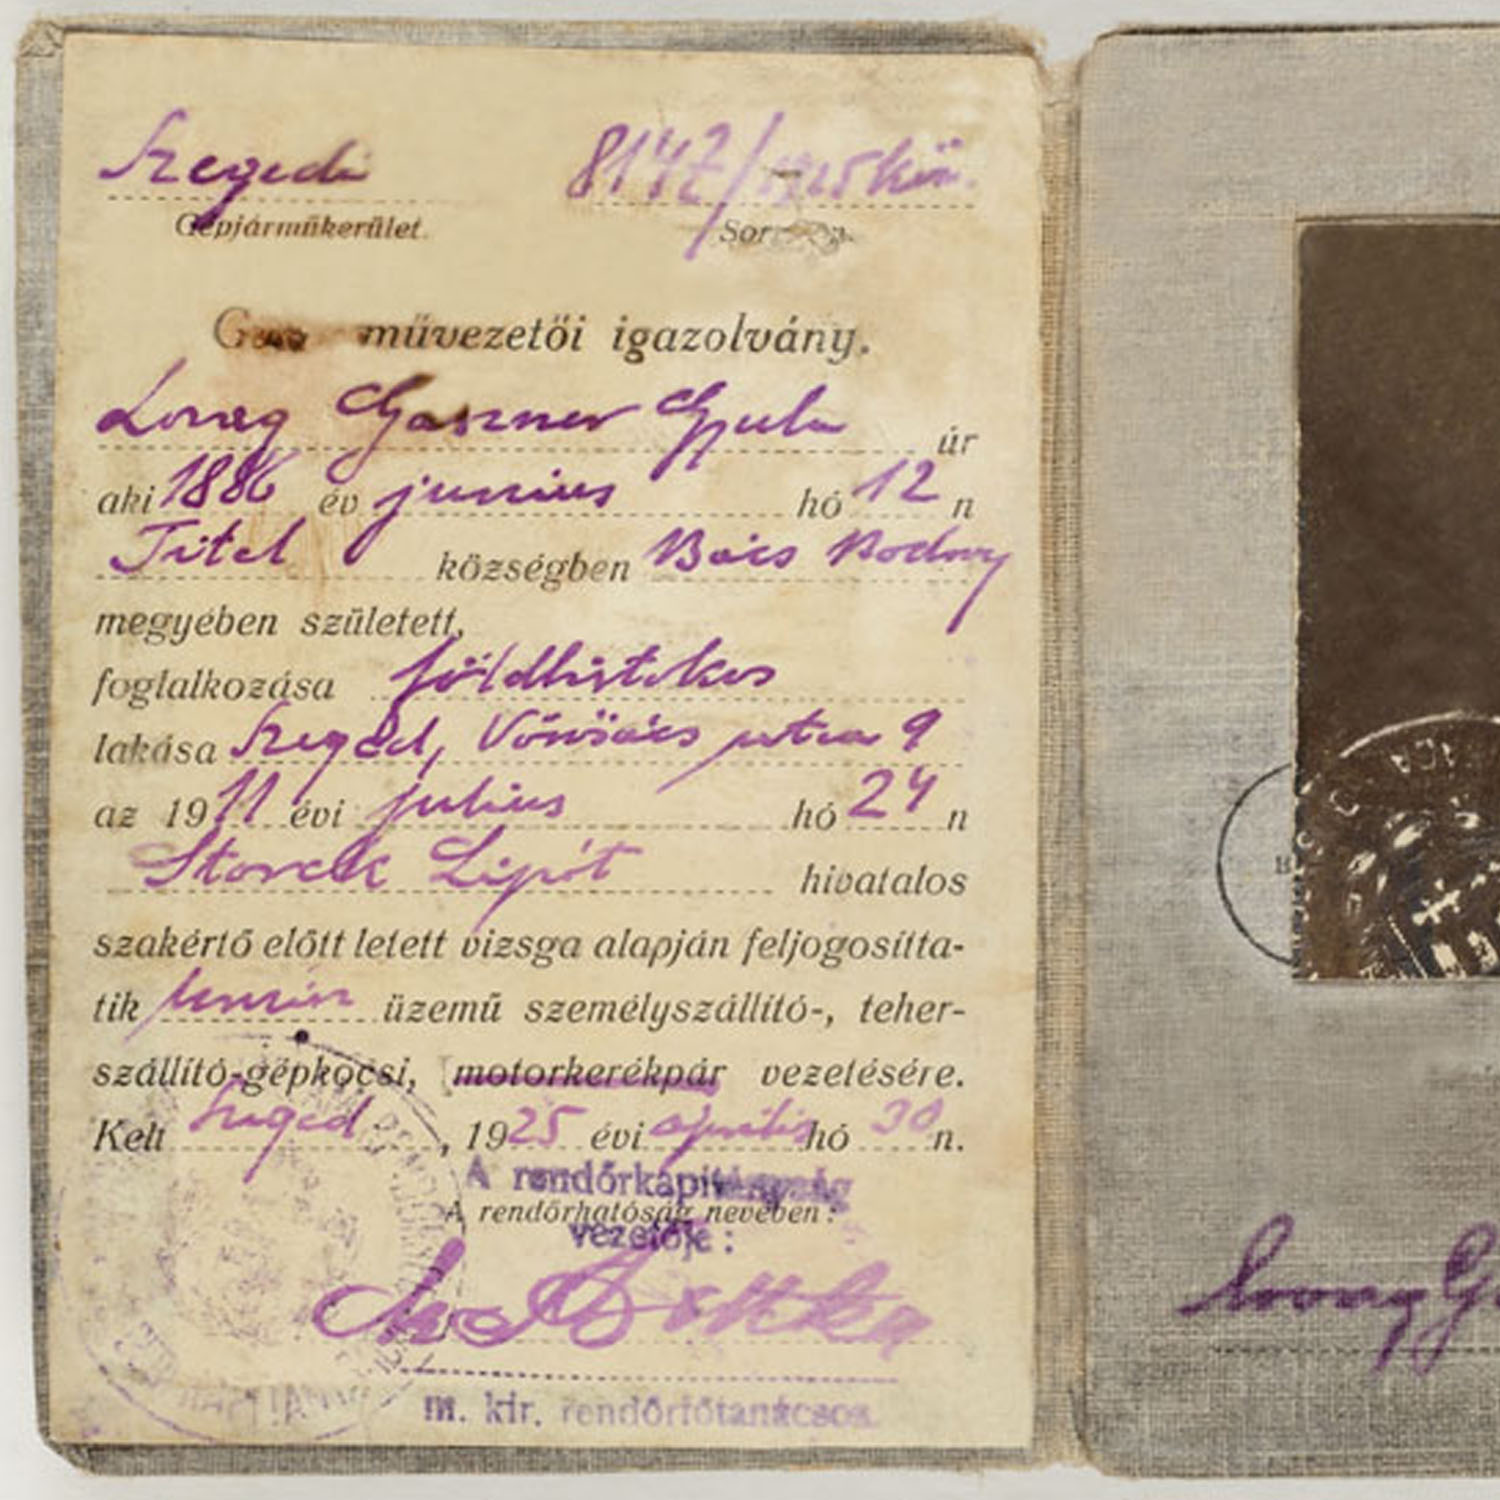 Szegedi 8147/1925 kih.
Gépjárműkerület.
művezetői igazolvány.
Lovag Gaszner Gyula úr
aki 1886 év junius hó 12 n
Titel községben Bács Bodrog
megyében született,
foglalkozása földbirtokos
lakása Szeged, utca 9
az 1911 évi julius hó 24 n
Storek Lipót hivatalos
szakértő előtt letett vizsga alapján feljogosítta-
tik benzin üzemű személyszállító-, teher-
szállító-gépkocsi, motorkerékpár vezetésére.
Kelt Szeged, 1925 évi április hó 30 n.
A rendőrkapitányság
A rendőrhatóság nevében:
vezetője:
m. kir. rendőrfőtanácsos.
Lovag G